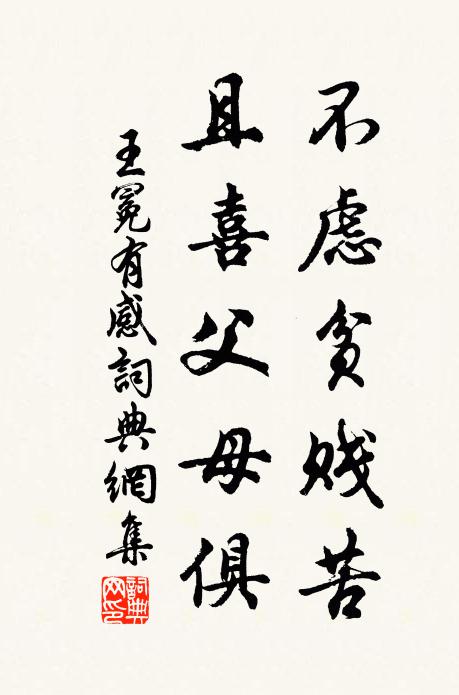 不虑貧贱苦
且喜父母俱
王冕有感詞典網集
詞典網印